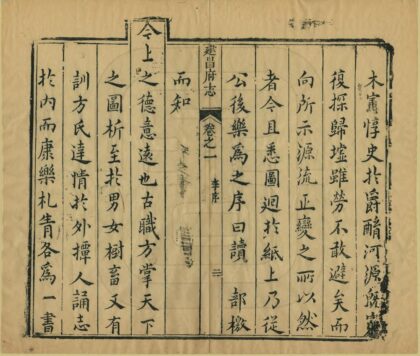 木寔惇史扵爵酳河源
復探歸墟雖勞不敢避矣而
向所示源流正變之所以然
者今且悉圖迴扵紙上乃從
公後樂為之序曰讀 部檄
建昌府志 卷之一 李序 二
而知
今上之德意遠也古職方掌天下
之圖析至扵男女樹畜又有
訓方氏達情扵外撢人誦志
扵内而康樂札眚各為一書